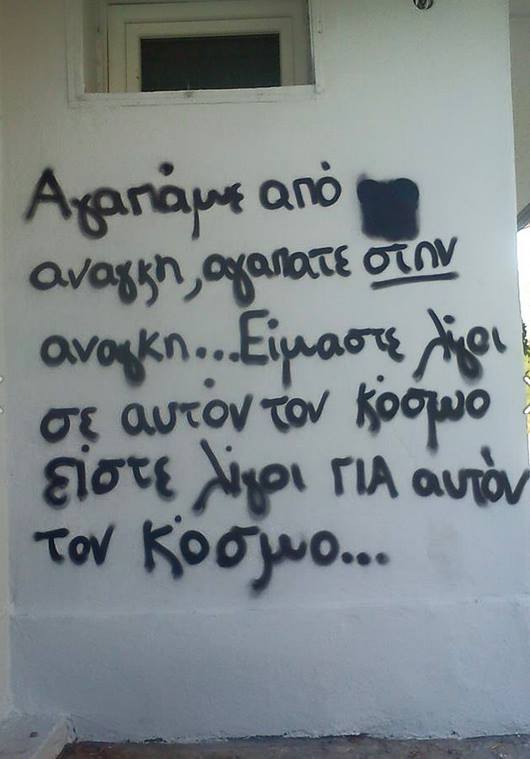 Αγαπάμε από
αναγκη, αγαπατε στην
αναγκη...Είμαστε λίγοι
σε αυτόν τον κόσμο
είστε λίγοι ΓΙΑ αυτόν
τον κόσμο...